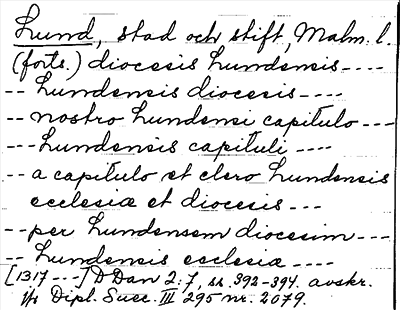 Lund, stad och stift, Malm. l.
(forts.) diocesis Lundensis ----
-- Lundensis diocesis ----
-- nostro Lundensi capitulo ----
--- Lundensis capituli ----
-- a capitulo et clero Lundensis
ecclesiæ et diocesis ---
-- per Lundensem diocesim ---
-- Lundensis ecclesia ----
[1317 ---] D Dan 2:7, ss. 392-394. avskr.
Dipl. Suec. III 295 nr. 2079.